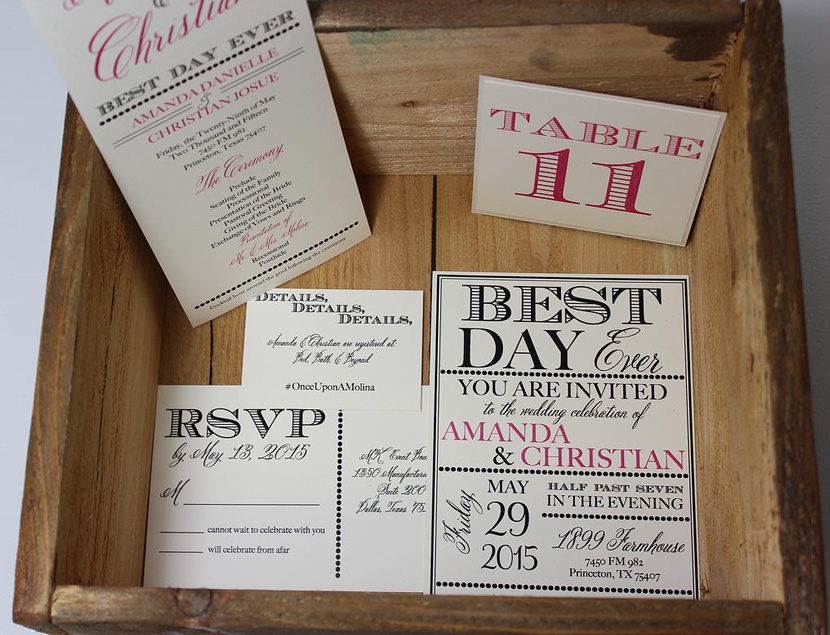 Christian
BEST DAY EVER
AMANDA DANIELLE
&
CHRISTIAN JOSUE
Friday, the Twenty-Ninth of May
Two Thousand and Fifteen
7450 FM 982
Princeton, Texas 75407
The Ceremony
Prelude
Seating of the Family
Processional
Presentation of the Bride
Pastoral Greeting
Giving of the Bride
Exchange of Vows and Rings
Presentation of
Mr. & Mrs. Molina
Recessional
Postlude
Cocktail hour around the pool following the ceremony
TABLE
11
DETAILS,
DETAILS,
DETAILS,
Amanda & Christian are registered at:
Bed, Bath, & Beyond
#OnceUponAMolina
RSVP
by May, 13, 2015
M
cannot wait to celebrate with you
will celebrate from afar
MK Event
1350
Suite 200
Dallas, Texas 75
BEST
DAY Ever
YOU ARE INVITED
to the wedding celebration of
AMANDA
& CHRISTIAN
Friday,
MAY
29
2015
HALF PAST SEVEN
IN THE EVENING
1899 Farmhouse
7450 FM 982
Princeton, TX 75407